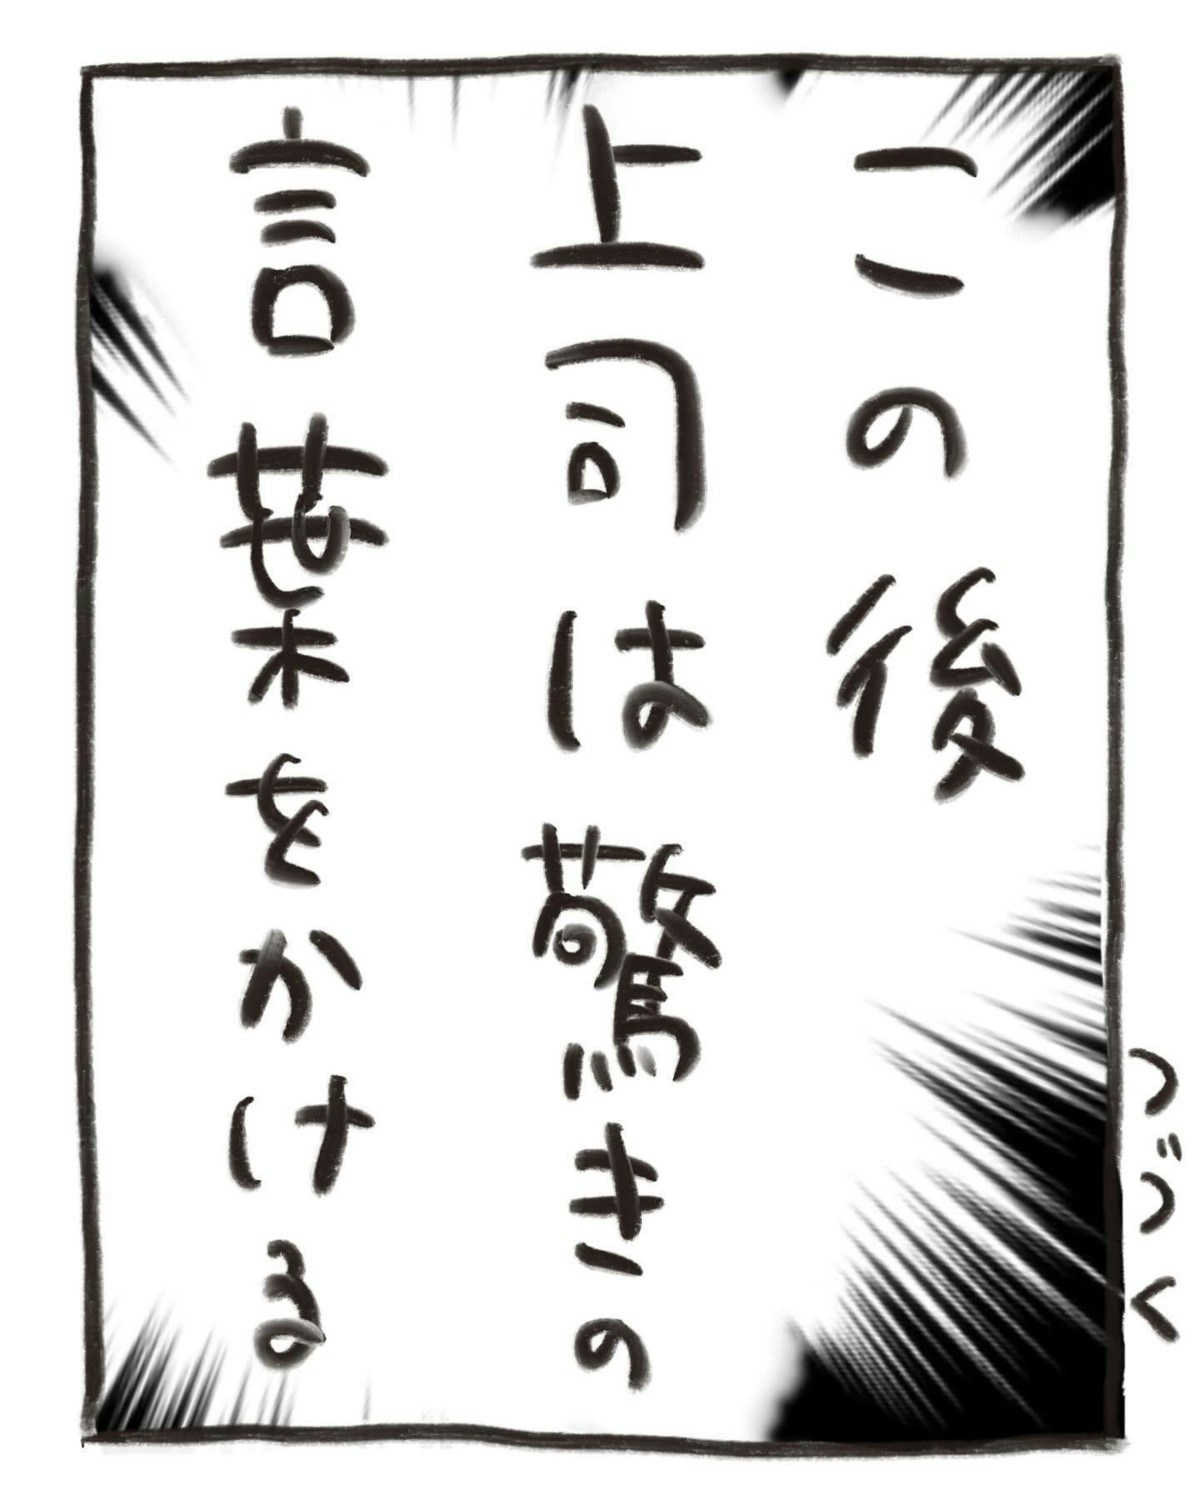 この後
上司は驚きの
言葉をかける
つづく